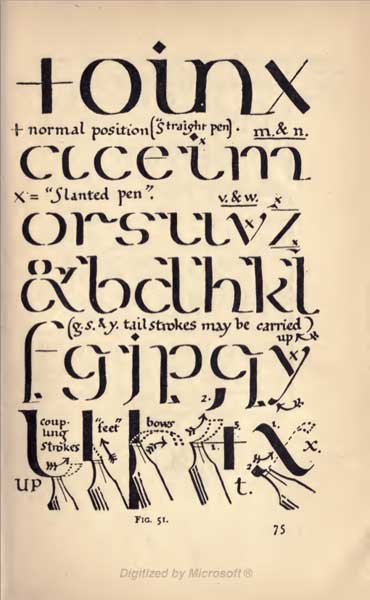 +oinx
+ normal position ("Straight pen). m. & n.
x
aceim
x = "Slanted pen". v. & w. x
orsuvz
x
&ybdhkl
(g. s. & y. tail strokes may be carried)
up x
fgjpqy
x
2.
coupling strokes "feet" bows 2. 1. 3. 1. 2.
up t. x.
FIG. 51.
75
Digitized by Microsoft ®